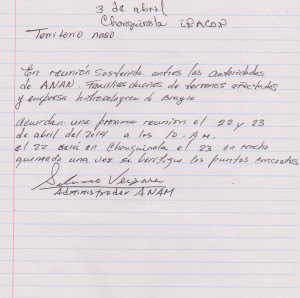 3 de abril
Changuinola IRACOP
Territorio naso
En reunión sostenida entre las autoridades
de ANAN. Familias dueños de terrenos afectados
y empresa hidroecologica de Bonyic
Acuerdan: una proxima reunion el 22 y 23
de abril del 2014 a las 10. A.M.
el 22 será en Changuinola el 23 en rancho
quemado una vez se verifique los puntos
Administrador ANAM